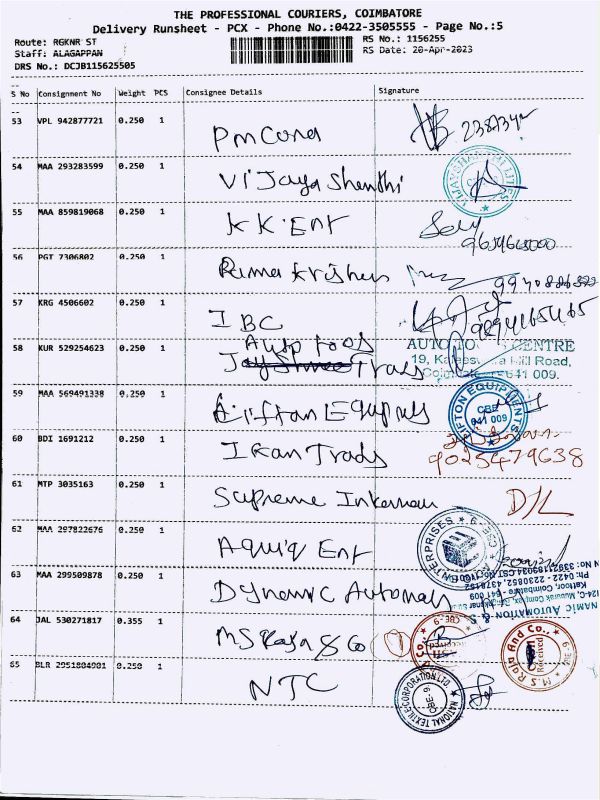 THE PROFESSIONAL COURIERS, COIMBATORE
Delivery Runsheet - PCX - Phone No.:0422-3505555 - Page No.:5
Route: RGKNR ST RS No.: 1156255
Staff: ALAGAPPAN RS Date: 20-Apr-2023
DRS No.: DCJB115625505
S No Consignment No Weight PCS Consignee Details Signature
53 VPL 942877721 0.250 1 Pm Cona
54 MAA 293283599 0.250 1 Vijaya Shenthi
55 MAA 859819068 0.250 1 KK. Ent
56 PGT 7306802 0.250 1 Rama Krishen
57 KRG 4506602 0.250 1 IBC
Auto Tools
58 KUR 529254623 0.250 1 Trads
AUTO TOOLS CENTRE
19, Kaleeswara Mill Road,
Coimbatore - 641 009.
59 MAA 569491338 0.250 1 LIFTON EQUIPMENTS CBE 641 009
60 BDI 1691212 0.250 1 Ikan Trads
9025479638
61 MTP 3035163 0.250 1 Supreme
62 MAA 297822676 0.250 1 Aquiq Ent ENTERPRISES CBE-9
63 MAA 299509878 0.250 1 Dynamic
NAMIC AUTOMATION & S
Kattoor, Coimbatore - 641 009
Ph: 0422 - 2230852, 4378152
64 JAL 530271817 0.355 1 MS Raja & Co M.S. Raja And Co., CBE-9 Received
65 BLR 2951804981 0.250 1 NTC NATIONAL TEXTILE CORPORATION LTD CBE-9